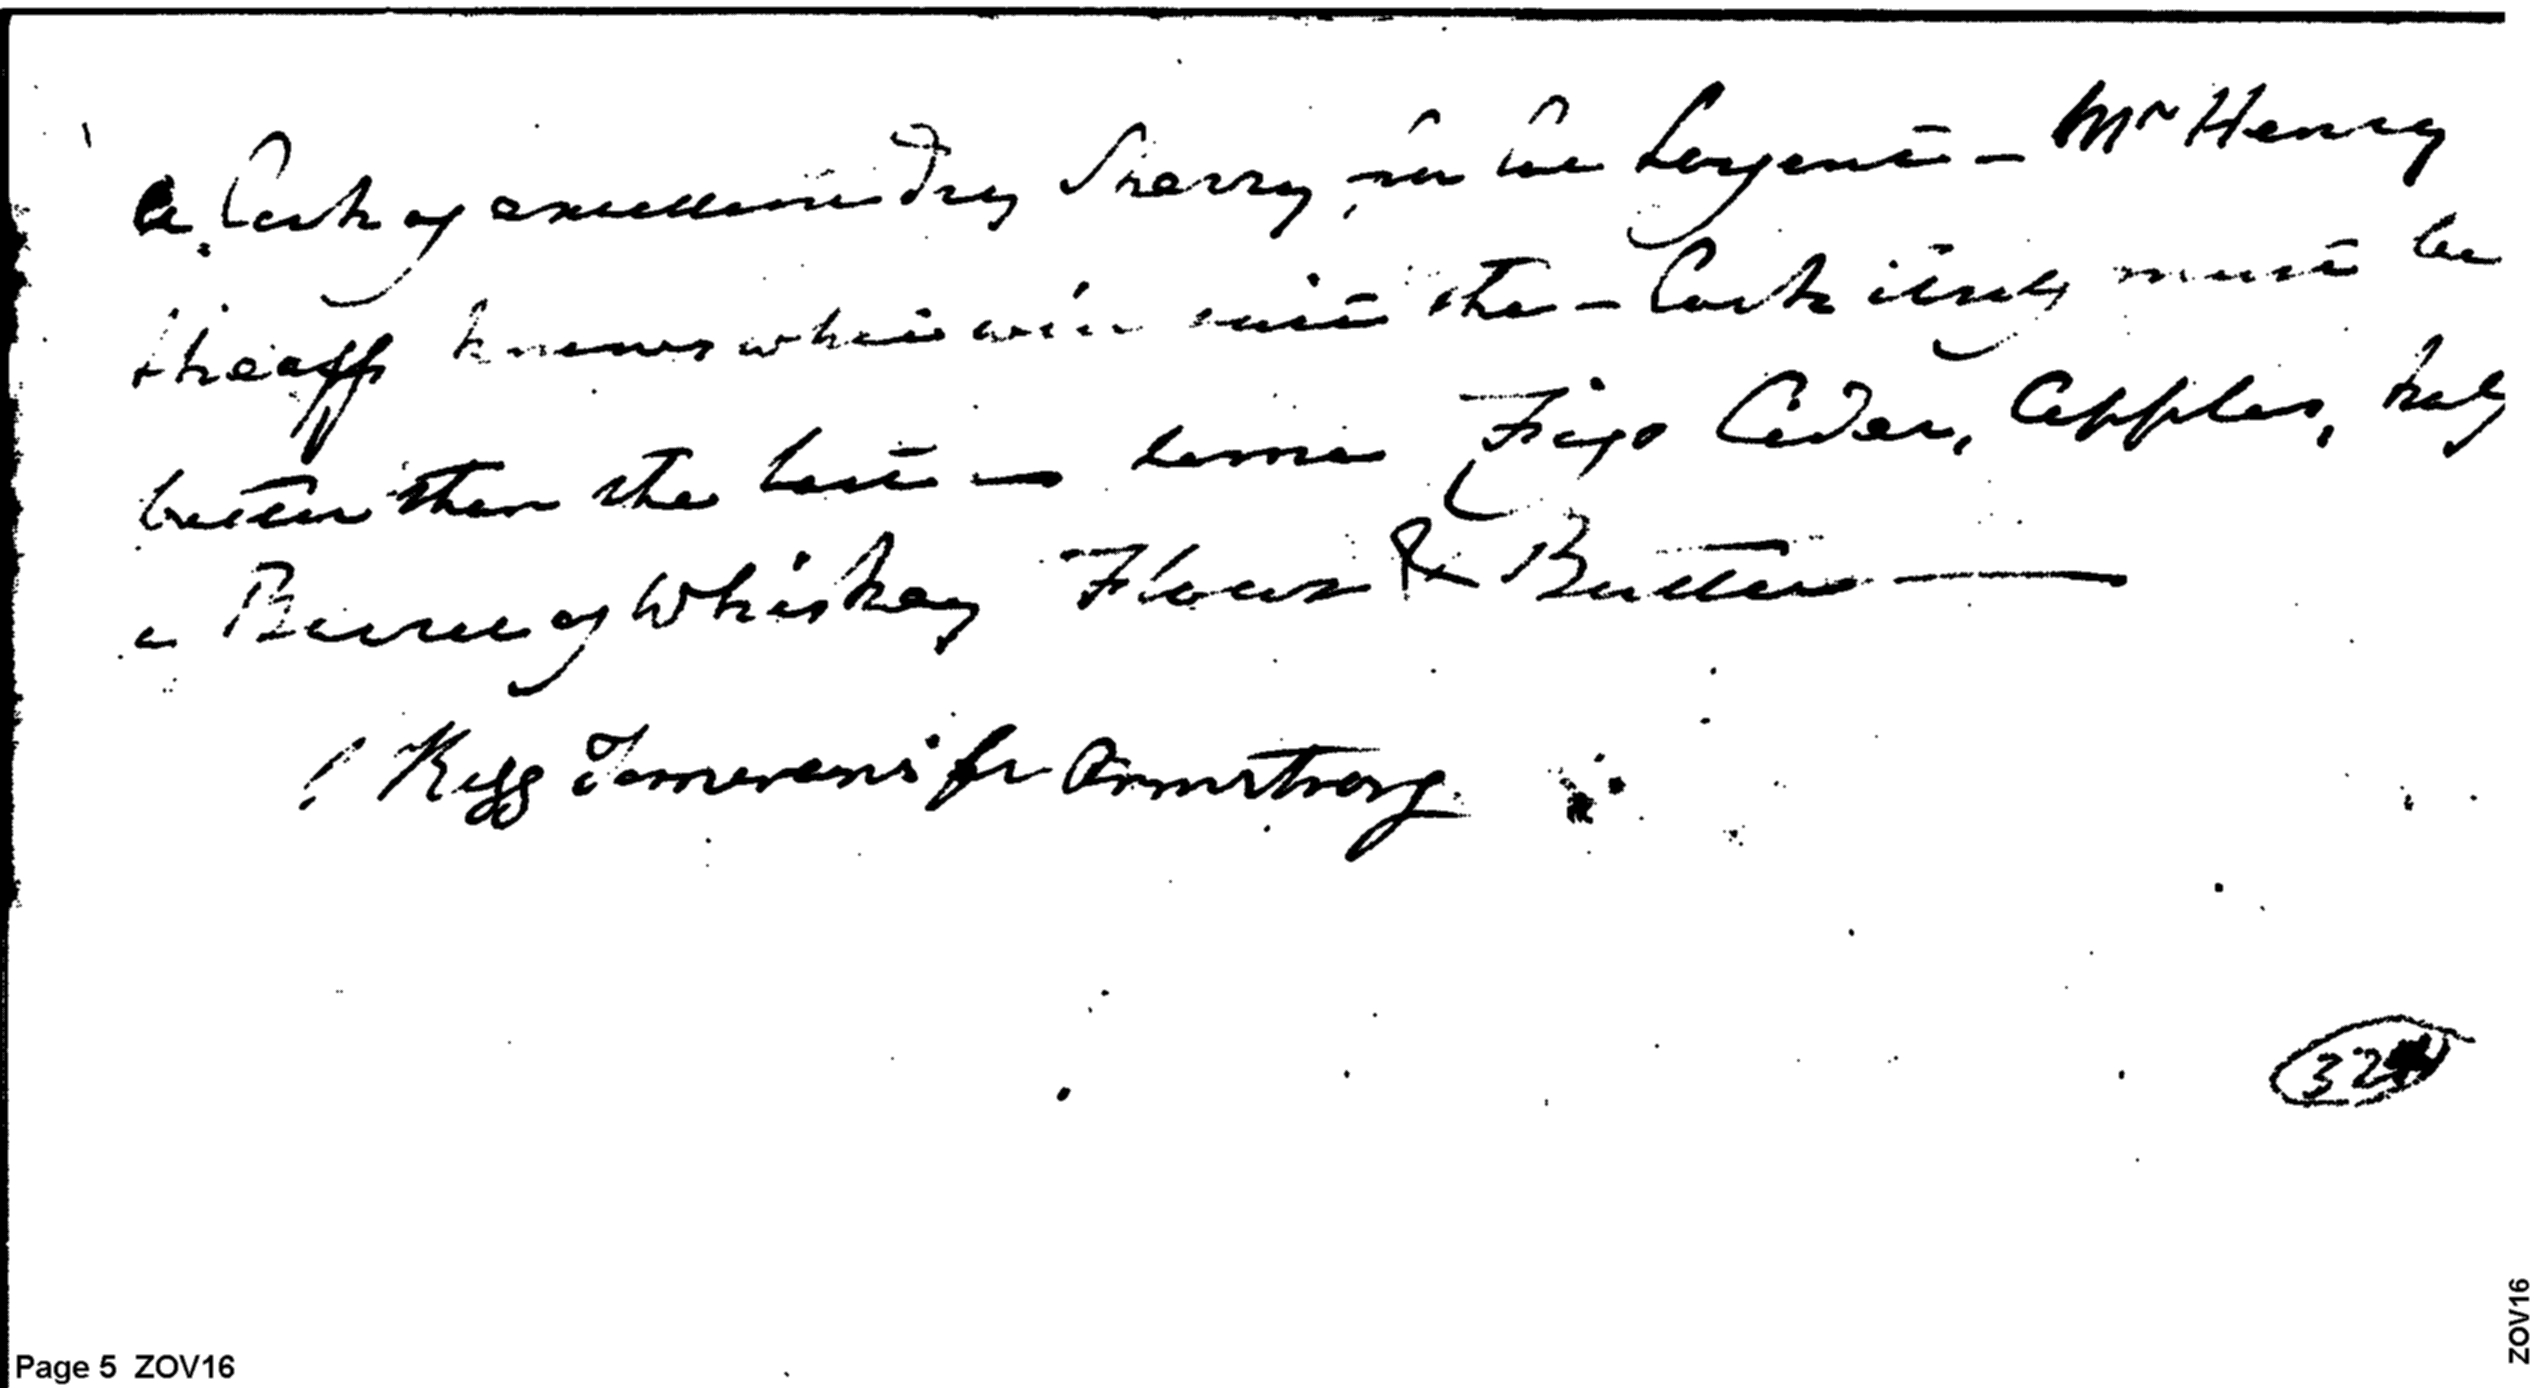 a Cask of excellent Dry Sherry, for the Sergent - Mr Henry
Sheaff knows what will suit the - Cask itself must be
better then the last - some Figs Cider, Apples, half
a Barrel of Whiskey Flour & Butter
1 Kegg Tamerens for Armstrong
32
Page 5 ZOV16
ZOV16